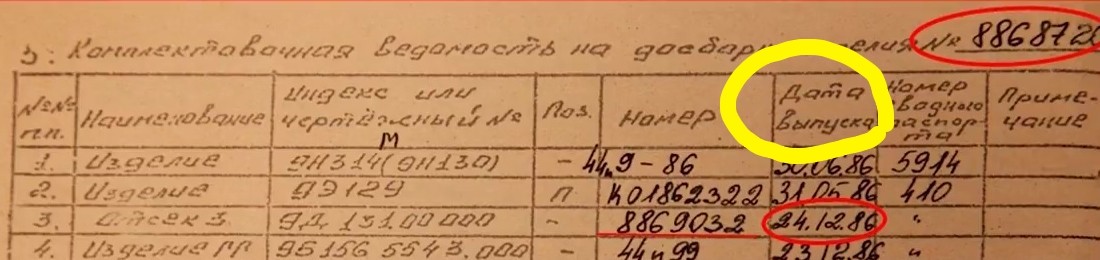 3. Комплектовочная ведомость на № 8868720
№№ пп. Наименование Индекс или чертёжный № Поз. Номер Дата выпуска Номер паспорта Примечание
М
1. Изделие 9Н314(9Н130) - 44 9-86 30.06.86 5914
2. Изделие 9Э129 П К01862322 31.05.86 410
3. Отсек 3. 9Д 13100000 - 8869032 24.12.86 "
4. Изделие ГГ 95156 5543.000 - 44 99 23.12.86 "